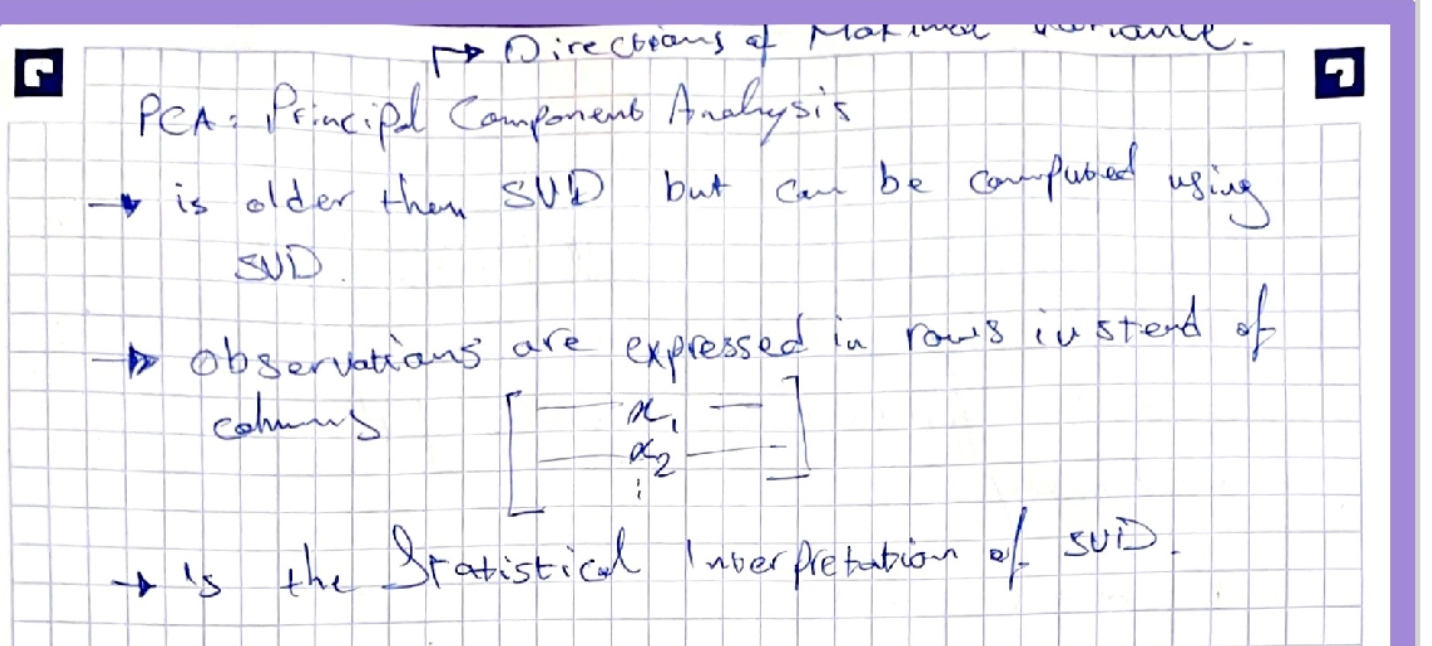 ↱ Directions of Maximal variance.
PCA: Principal Component Analysis
→ is older then SVD but can be computed using
SVD.
→ observations are expressed in rows instead of
columns [ — x₁ — ]
— x₂ —
⋮
→ is the Statistical Interpretation of SVD.